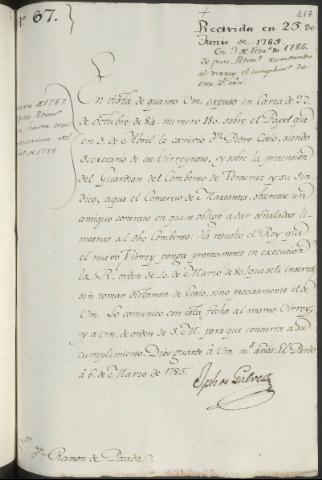 Nº 67.
217
Recivida en 25 de
Junio de 1785.
En 3 de Febrº de 1786.
al Virrey el cumplimto de
esta Rl orn
de 1787.
de 1786
En vista de quanto Vm. expuso en Carta de 27
de Octubre de 84. numero 180. sobre el Papel que
en 3. de Abril le escrivio Dn Pedro Cosio, siendo
Secretario de ese Virreynato, y sobre la pretension
del Guardian del Combento de Veracruz y su Sin-
dico, a que el Comercio de Mazantes, observase un
antiguo contrato en que se obligó a dar señaladas li-
mosnas al dho Combento: Ha resuelto el Rey que
el nuevo Virrey ponga prontamente en execucion
la R. orden de 20. de Marzo de 84. que se la inserta
sin tomar dictamen de Cosio, sino precisamente el de
Vm. Lo comunico con esta fecha al mismo Virrey,
y a Vm. de orden de S. M. para que concurra a su
cumplimiento. Dios guarde a Vm ms. años. El Pardo
á 6. de Marzo de 1785.
Jph de Galvez
Sor Dn Ramon de Posada.